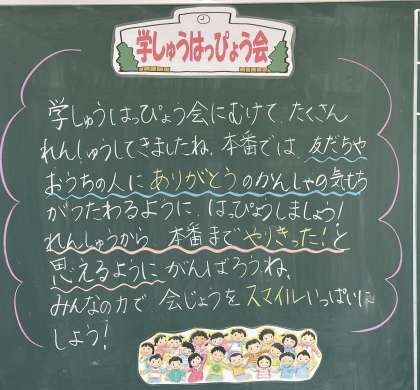 学しゅうはっぴょう会
学しゅうはっぴょう会にむけて、たくさん
れんしゅうしてきましたね。本番では、友だちや
おうちの人に ありがとう のかんしゃの気もち
がつたわるように、はっぴょうしましょう！
れんしゅうから 本番まで やりきった！と
思えるように がんばろうね。
みんなの力で 会じょうを スマイル いっぱいに
しよう！